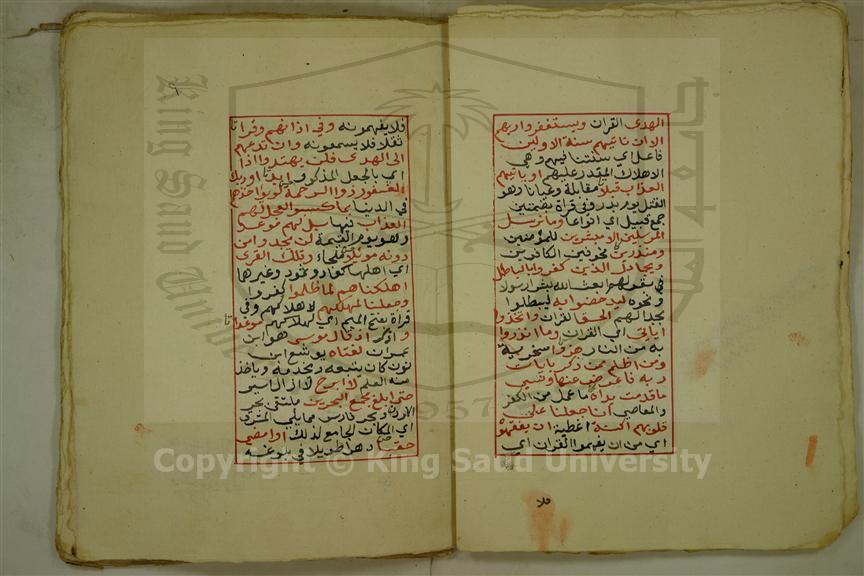 الهدى القران ويستغفروا ربهم
الا ان تاتيهم سنة الاولين
فاعل اي سنتنا فيهم وهي
الاهلاك المقدر عليهم او ياتيهم
العذاب قبلا مقابلة وعيانا وهو
القتل يوم بدر وفي قراة بضمتين
جمع قبيل اي انواعا وما نرسل
المرسلين الا مبشرين للمؤمنين
ومنذرين مخوفين الكافرين
ويجادل الذين كفروا بالباطل
بقولهم ابعث الله بشرا رسولا
ونحوه ليدحضوا به ليبطلوا
بجدالهم الحق القران واتخذوا
اياتي اي القران وما انذروا
به من النار هزوا سخرية
ومن اظلم ممن ذكر بايات
ربه فاعرض عنها ونسي
ما قدمت يداه ما عمل من الكفر
والمعاصي انا جعلنا على
قلوبهم اكنة اغطية ان يفقهوه
اي من ان يفهموا القران اي
فلا
فلا يفهمونه وفي اذانهم وقرا
ثقلا فلا يسمعونه وان تدعهم
الى الهدى فلن يهتدوا اذا
اي بالجعل المذكور ابدا وربك
الغفور ذو الرحمة لو يواخذهم
في الدنيا بما كسبوا لعجل لهم
العذاب فيها بل لهم موعد
وهو يوم القيمة لن يجدوا من
دونه موئلا ملجاء وتلك القرى
اي اهلها كعاد وثمود وغيرها
اهلكناهم لما ظلموا كفروا
وجعلنا لمهلكهم لاهلاكهم وفي
قراة بفتح الميم اي لهلاكهم موعدا
واذكر اذ قال موسى هو ابن
عمران لفتاه يوشع ابن
نون كان يتبعه ويخدمه وياخذ
منه العلم لا ابرح لا ازال اسير
حتى ابلغ مجمع البحرين ملتقى بحر
الروم وبحر فارس مما يلي المشرق
اي المكان الجامع لذلك او امضي
حقبا دهرا طويلا في بلوغه
King Saud University
جامعة الملك سعود
1957
Copyright © King Saud University